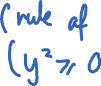 (rule of
(y² ≥ 0